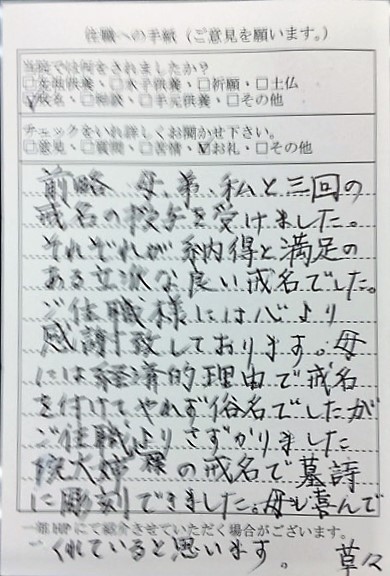 住職への手紙（ご意見を願います。）
当院では何をされましたか？
□永代供養・□水子供養・□祈願・□土仏
☑戒名・□相談・□手元供養・□その他
チェックをいれ詳しくお聞かせ下さい。
□意見・□質問・□苦情・☑お礼・□その他
前略 母、弟、私と三回の
戒名の授与を受けました。
それぞれが納得と満足の
ある立派な良い戒名でした。
ご住職様には心より
感謝致しております。母
には経済的理由で戒名
を付けてやれず俗名でしたが
ご住職よりさずかりました
院大姉の戒名で墓誌
に彫刻できました。母も喜んで
一部HPにて紹介させていただく場合がございます。
くれていると思います。 草々